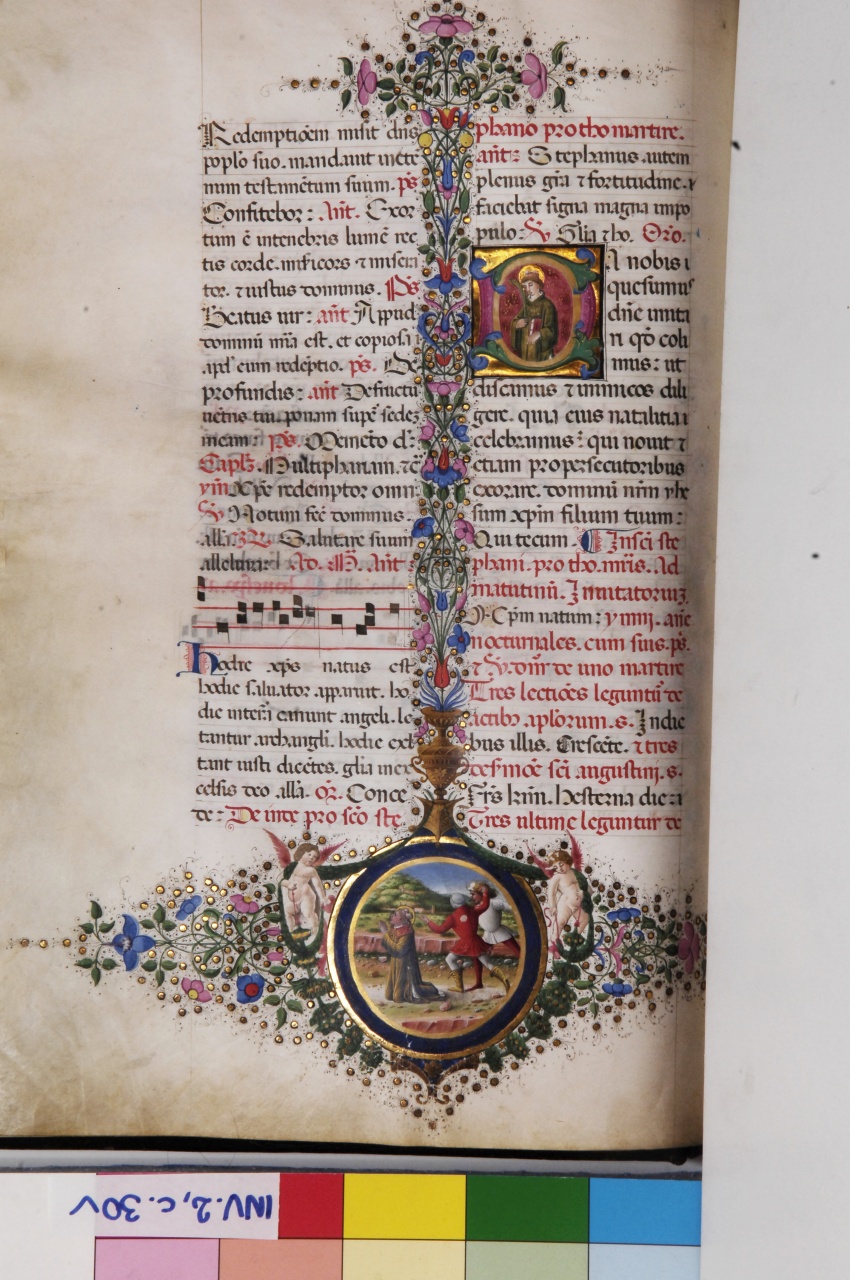 Redemptiõem misit dns
poplo suo. mandauit ī ete
num testamētum suum. ps
Confitebor: Añt. Exor
tum ē in tenebris lumē rec
tis corde. misēricors ⁊ miseri
tor. ⁊ iustus dominus. Ps
Beatus uir: añt Appud
dominū mīa est. et copiosa
apd' eum redēptio. ps. De
profundis: añt De fructu
uētris tui. ponam supē sedez
meam: Ps. Memēto dn̄:
Capl'. Multiphariam. ⁊c̄
ymñ Xp̄e redemptor omni:
℣ Notum fec̄ dominus.
all'a ℞ Salutare suum
alleluia: Ad. M. Añt
hodie xp̄s natus est
hodie saluator apparuit. ho
die in terra canunt angeli. le
tantur archangli. hodie exl
tant iusti dicētes. glīa in ex
celsis deo all'a. Or̄. Conce
de: De inde pro scō ste
phano prothomartire.
añt: Stephanus. autem
plenus gr̄a ⁊ fortitudine.
faciebat signa magna in po
pulo: ℣ Glīa ⁊ ho. Oro.
DA nobis
quesumus
dn̄e imita
ri q̄d coli
mus: ut
discamus ⁊ inimicos dili
gere. quia eius natalitia
celebramus: qui nouit
etiam pro persecutoribus
exorare. dominū nr̄m yhe
sum xp̄m filium tuum:
Qui tecum. In sc̄i ste
phani. protho.mr̄is. Ad
matutinū. Inuitatoriuz.
Xp̄m natum: ymni. añe
nocturnales. cum suis. ps.
⁊ ℣. dn̄r de uno martire
Tres lectiōes leguntur de
actibus aplōrum. s. In die
bus illis. Crescēte. ⁊ tres
de s'moē sc̄i augustini. s.
Fr̄s kr̄mi. Hesterna die
Tres ultime leguntur de
INV. 2, c. 30v